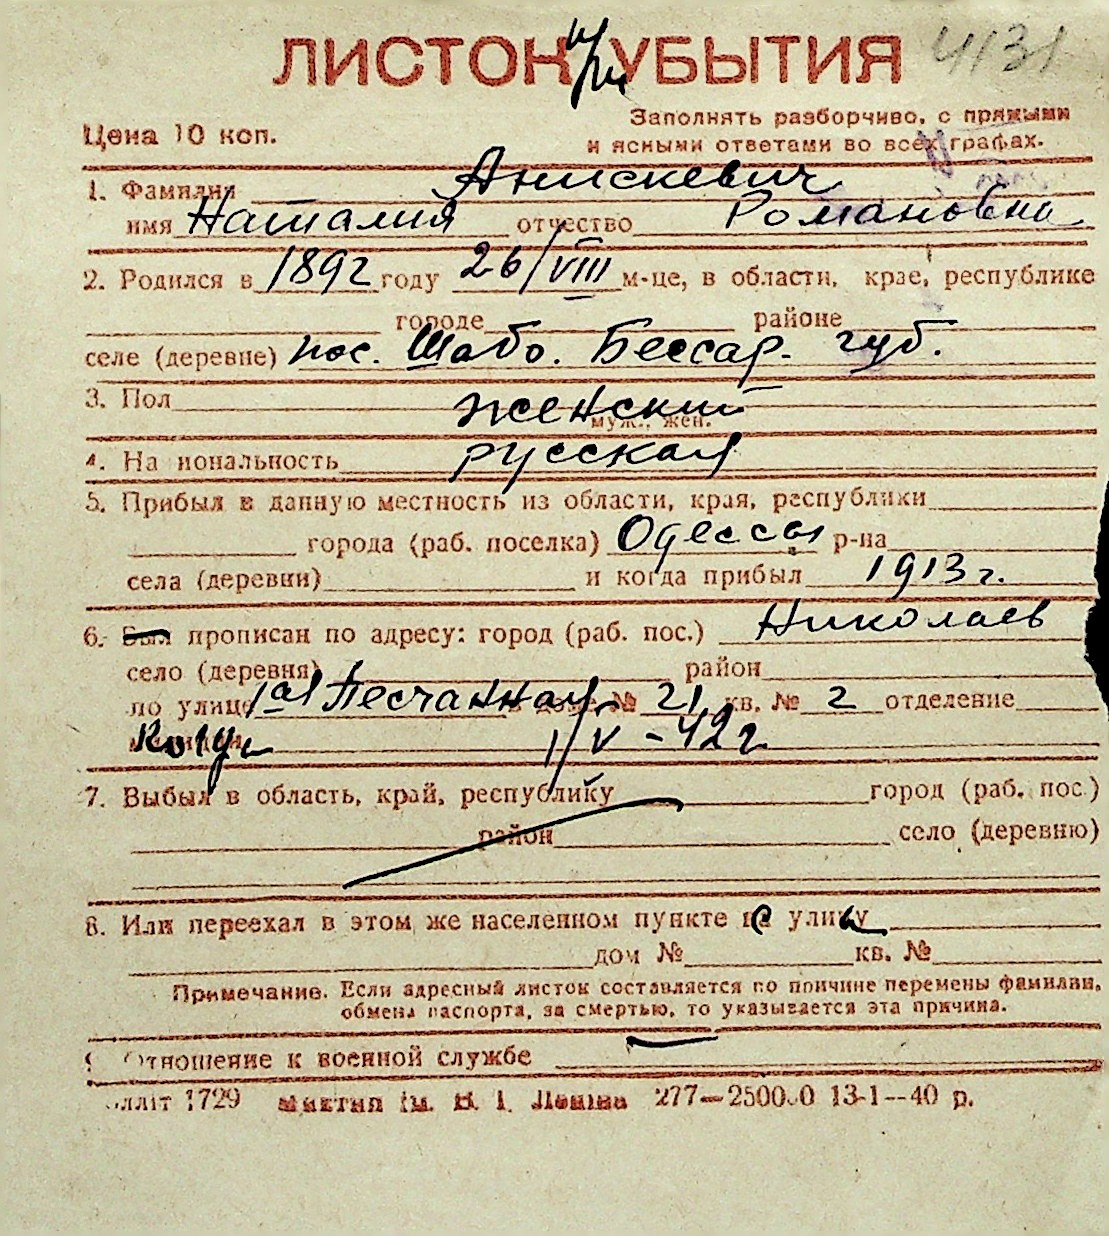 ЛИСТОК УБЫТИЯ 4131
Цена 10 коп.
Заполнять разборчиво, с прямыми
и ясными ответами во всех графах.
1. Фамилия Анискевич
имя Наталия отчество Романовна
2. Родился в 1892 году 26/VIII м-це, в области, крае, республике
городе районе
селе (деревне) пос. Шабо. Бессар. губ.
3. Пол женский
муж., жен.
4. На иональность русская
5. Прибыл в данную местность из области, края, республики
города (раб. поселка) Одессы р-на
села (деревни) и когда прибыл 1913 г.
6. Был прописан по адресу: город (раб. пос.) Николаев
село (деревня) район
по улице 1ая Песчанная в доме № 21 кв. № 2 отделение
милиции 1/V - 42 г
7. Выбыл в область, край, республику город (раб. пос.)
район село (деревню)
8. Или переехал в этом же населенном пункте на улицу
дом № кв. №
Примечание. Если адресный листок составляется по причине перемены фамилии,
обмена паспорта, за смертью, то указывается эта причина.
9 Отношение к военной службе
1729 ім. В. І. Леніна 277—250000 13-1--40 р.